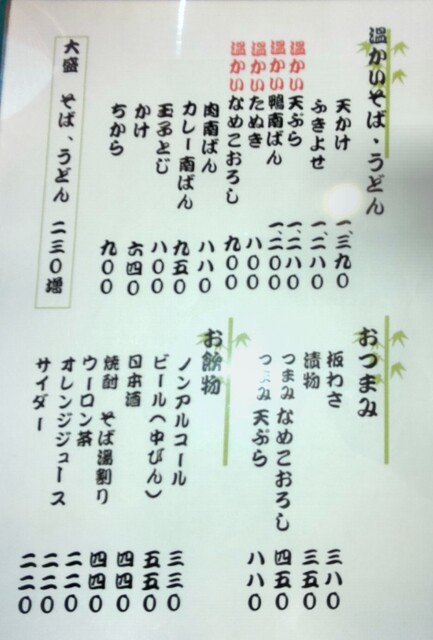 温かいそば・うどん
天かけ 一、三九〇
ふきよせ 一、二八〇
温かい天ぷら 一、二八〇
温かい鴨南ばん 一、二〇〇
温かいたぬき 八〇〇
温かいなめこおろし 九〇〇
肉南ばん 八八〇
カレー南ばん 九五〇
玉子とじ 八〇〇
かけ 六四〇
ちから 九〇〇
大盛 そば、うどん 二三〇増
おつまみ
板わさ 三八〇
漬物 三五〇
つまみ なめこおろし 四五〇
つまみ 天ぷら 八八〇
お飲物
ノンアルコール 三三〇
ビール（中びん） 五五〇
日本酒 四四〇
焼酎 そば湯割り 四四〇
ウーロン茶 二二〇
オレンジジュース 二二〇
サイダー 二二〇